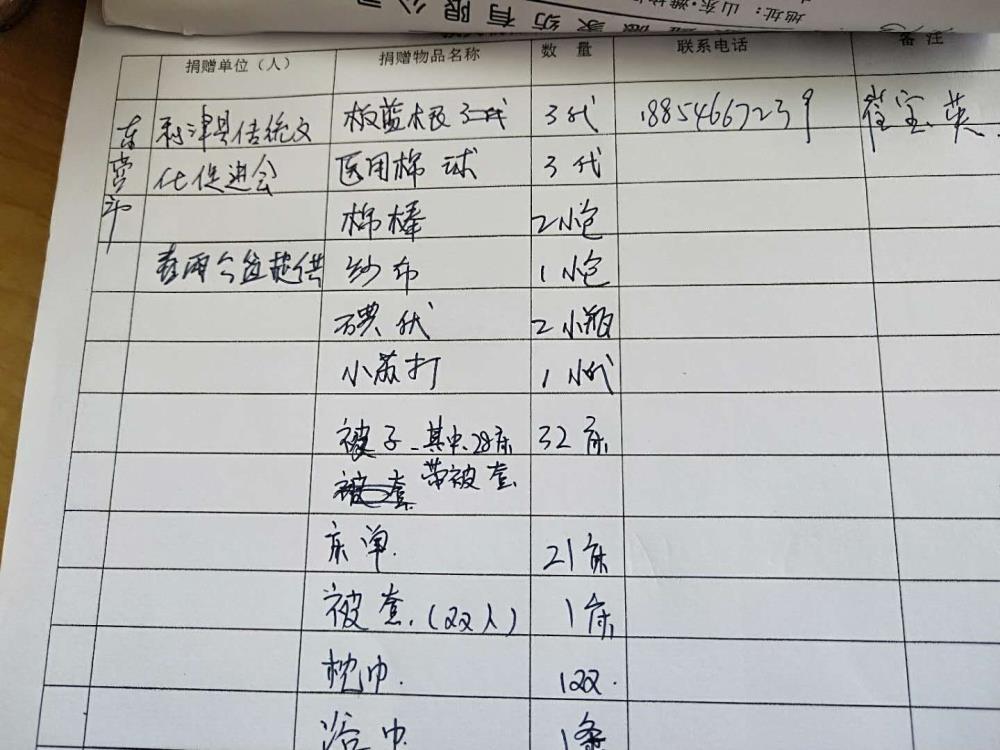 家纺有限公司
地址：山东·潍坊
捐赠单位（人） 捐赠物品名称 数 量 联系电话 备 注
东营市 利津县传统文 板蓝根 3代 18854667239 崔宝英
化促进会 医用棉球 3代
棉棒 2小包
纱布 1小包
碘伏 2小瓶
小苏打 1小代
被子 - 其中28床 32床
带被套
床单. 21床
被套.(双人) 1床
枕巾. 1双.
浴巾 1条